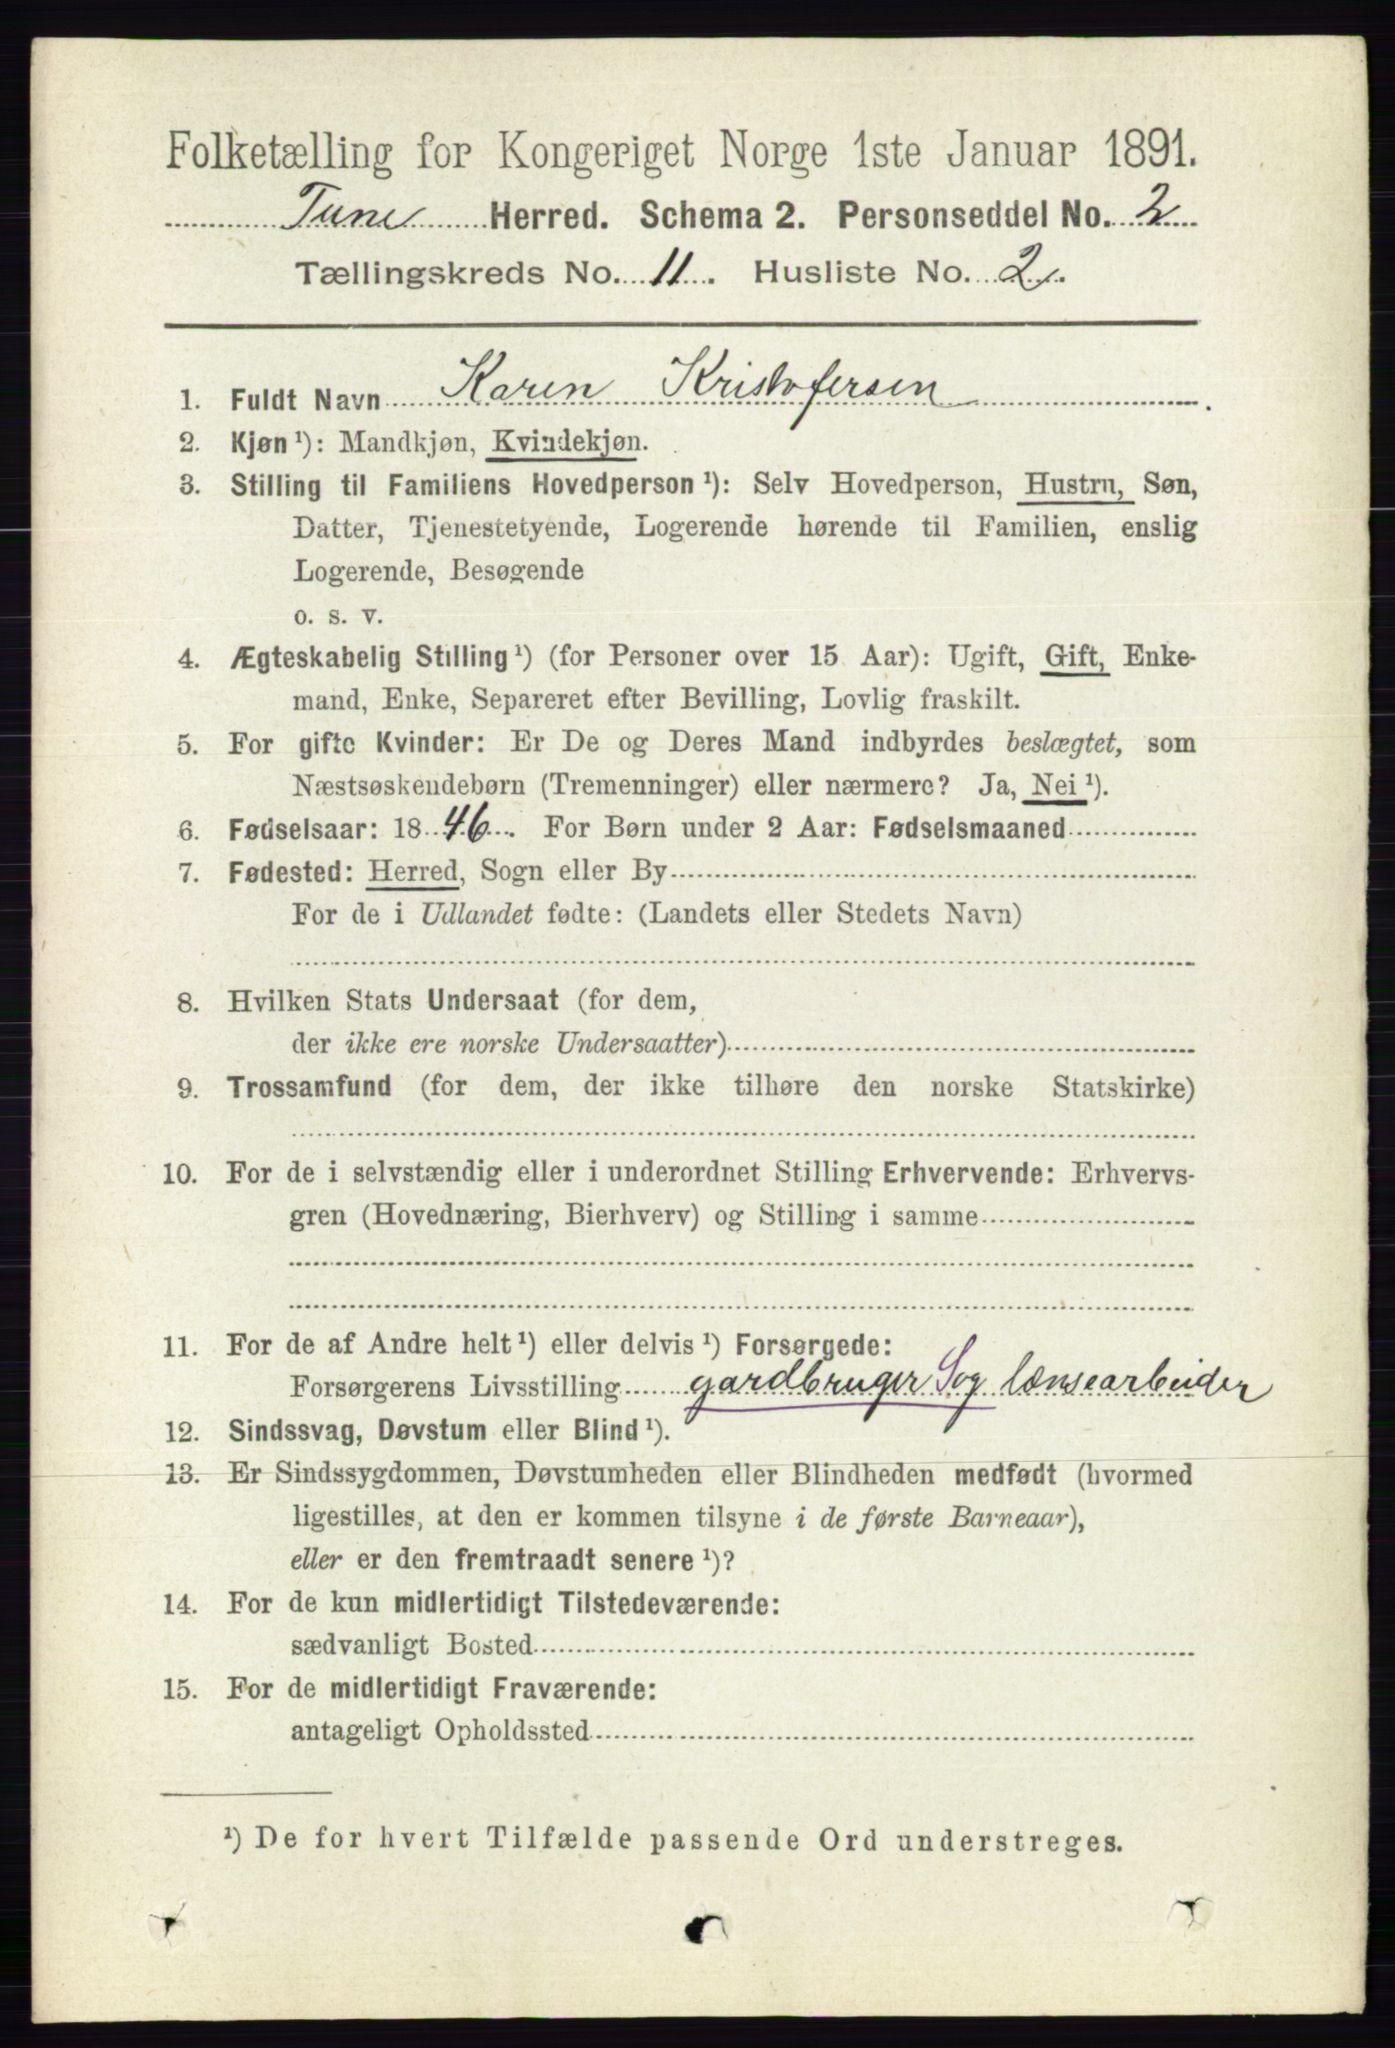 Folketælling for Kongeriget Norge 1ste Januar 1891.
Tune Herred. Schema 2. Personseddel No. 2
Tællingskreds No. 11. Husliste No. 2.
1. Fuldt Navn Karen Kristofersen.
2. Kjøn ¹): Mandkjøn, Kvindekjøn.
3. Stilling til Familiens Hovedperson ¹): Selv Hovedperson, Hustru, Søn,
Datter, Tjenestetyende, Logerende hørende til Familien, enslig
Logerende, Besøgende
o. s. v.
4. Ægteskabelig Stilling ¹) (for Personer over 15 Aar): Ugift, Gift, Enke-
mand, Enke, Separeret efter Bevilling, Lovlig fraskilt.
5. For gifte Kvinder: Er De og Deres Mand indbyrdes beslægtet, som
Næstsøskendebørn (Tremenninger) eller nærmere? Ja, Nei ¹).
6. Fødselsaar: 1846. For Børn under 2 Aar: Fødselsmaaned
7. Fødested: Herred, Sogn eller By
For de i Udlandet fødte: (Landets eller Stedets Navn)
8. Hvilken Stats Undersaat (for dem,
der ikke ere norske Undersaatter)
9. Trossamfund (for dem, der ikke tilhøre den norske Statskirke)
10. For de i selvstændig eller i underordnet Stilling Erhvervende: Erhvervs-
gren (Hovednæring, Bierhverv) og Stilling i samme
11. For de af Andre helt ¹) eller delvis ¹) Forsørgede:
Forsørgerens Livsstilling gardbruger S og lænsearbeider
12. Sindssvag, Døvstum eller Blind ¹).
13. Er Sindssygdommen, Døvstumheden eller Blindheden medfødt (hvormed
ligestilles, at den er kommen tilsyne i de første Barneaar),
eller er den fremtraadt senere ¹)?
14. For de kun midlertidigt Tilstedeværende:
sædvanligt Bosted
15. For de midlertidigt Fraværende:
antageligt Opholdssted
¹) De for hvert Tilfælde passende Ord understreges.